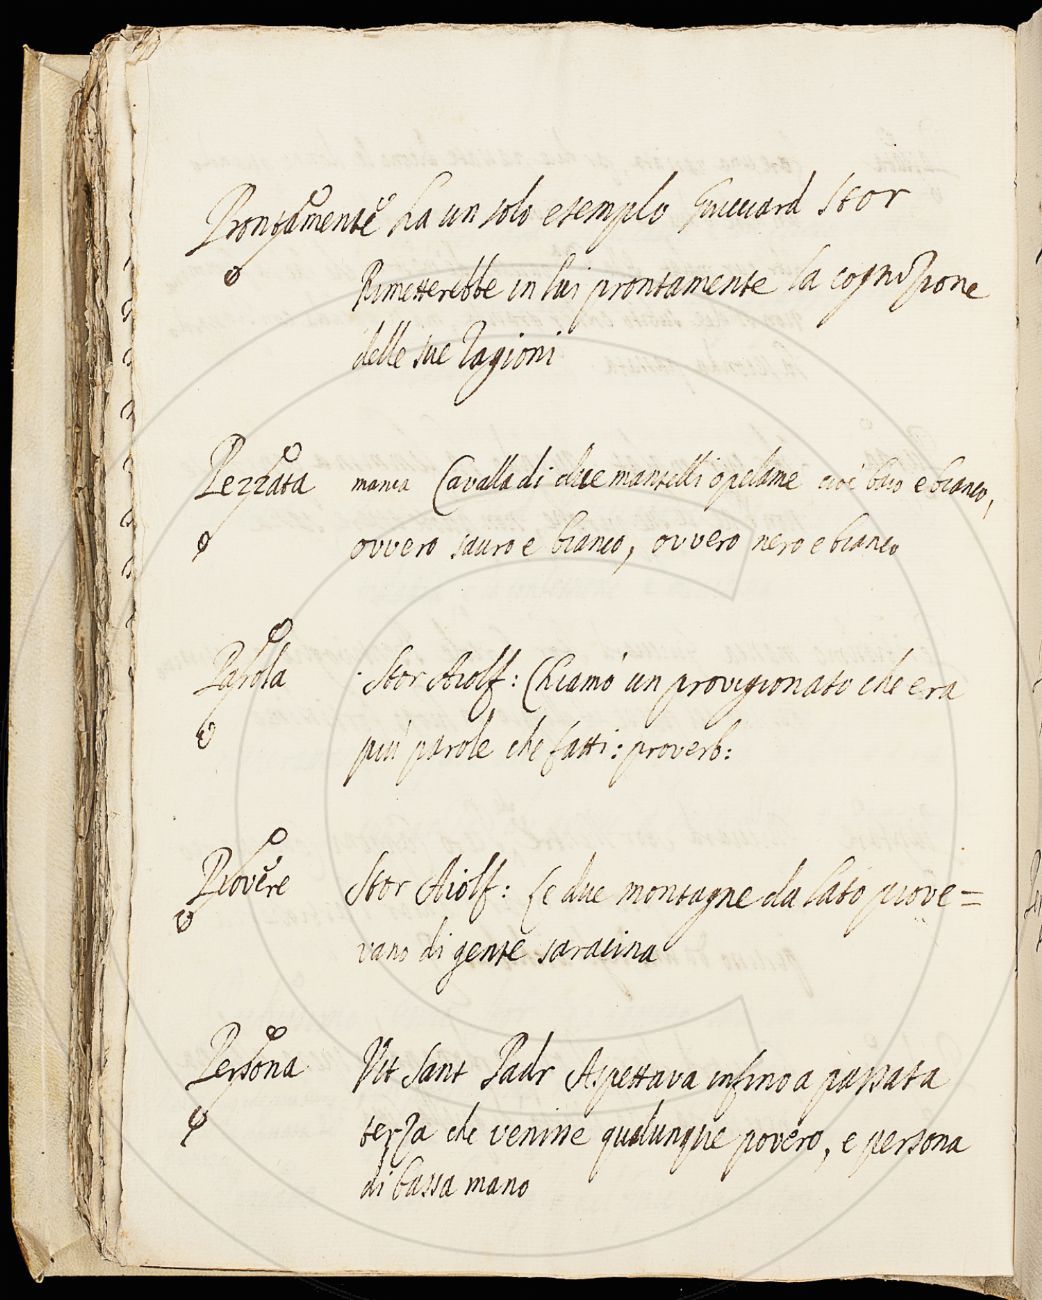 Prontamente ha un solo esempio Guicciard Stor
Rimetterebbe in lui prontamente la cognizione
delle sue ragioni
Pezzata manca Cavalla di due mantelli o pelame cioè baio e bianco,
ovvero sauro e bianco, ovvero nero e bianco
Parola Stor Aiolf: Chiamò un provigionato che era
più parole che fatti: proverb:
Piovere Stor Aiolf: Le due montagne da lato piove=
vano di gente saracina
Persona Vit Sant Padr Aspettava infino a passata
terza che venisse qualunque povero, e persona
di bassa mano